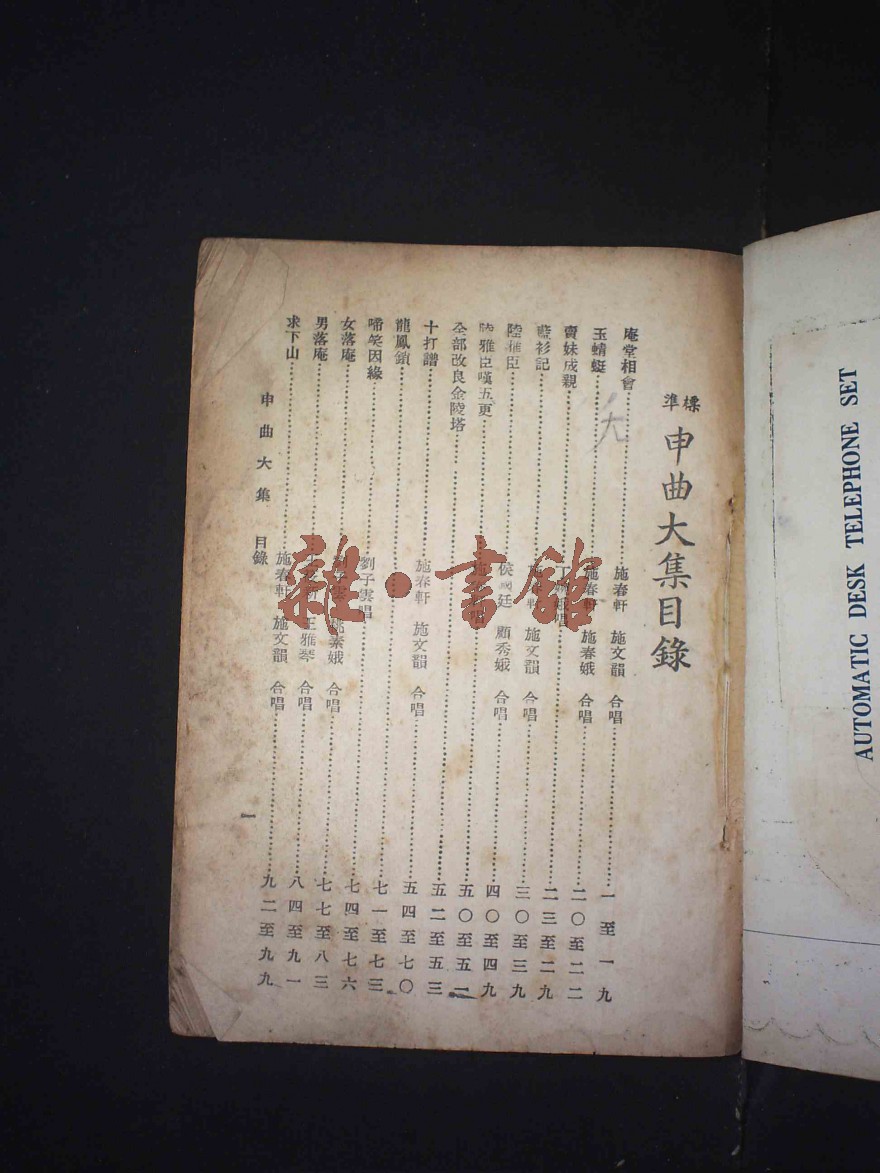 AUTOMATIC DESK TELEPHONE SET
標準
申曲大集目錄
庵堂相會 施春軒 施文韻 合唱 一至一九
玉蜻蜓 施春軒 施春娥 合唱 二〇至二二
賣妹成親 唱 二三至二九
藍衫記 施春軒 施文韻 合唱 三〇至三九
陸雅臣 侯國廷 顧秀娥 合唱 四〇至四九
陸雅臣嘆五更 施 唱 五〇至五一
全部改良金陵塔 五二至五三
十打譜 施春軒 施文韻 合唱 五四至七〇
龍鳳鎖 七一至七三
啼笑因緣 劉子雲唱 七四至七六
女落庵 劉子雲 姚素娥 合唱 七七至八三
男落庵 王雅琴 合唱 八四至九一
求下山 施春軒 施文韻 合唱 九二至九九
申曲大集 目錄
一
雜·書館